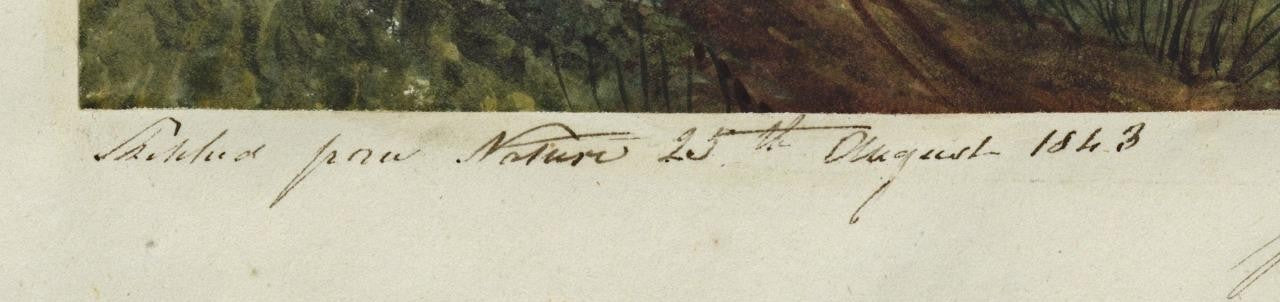 Sketched from Nature 25th August 1843